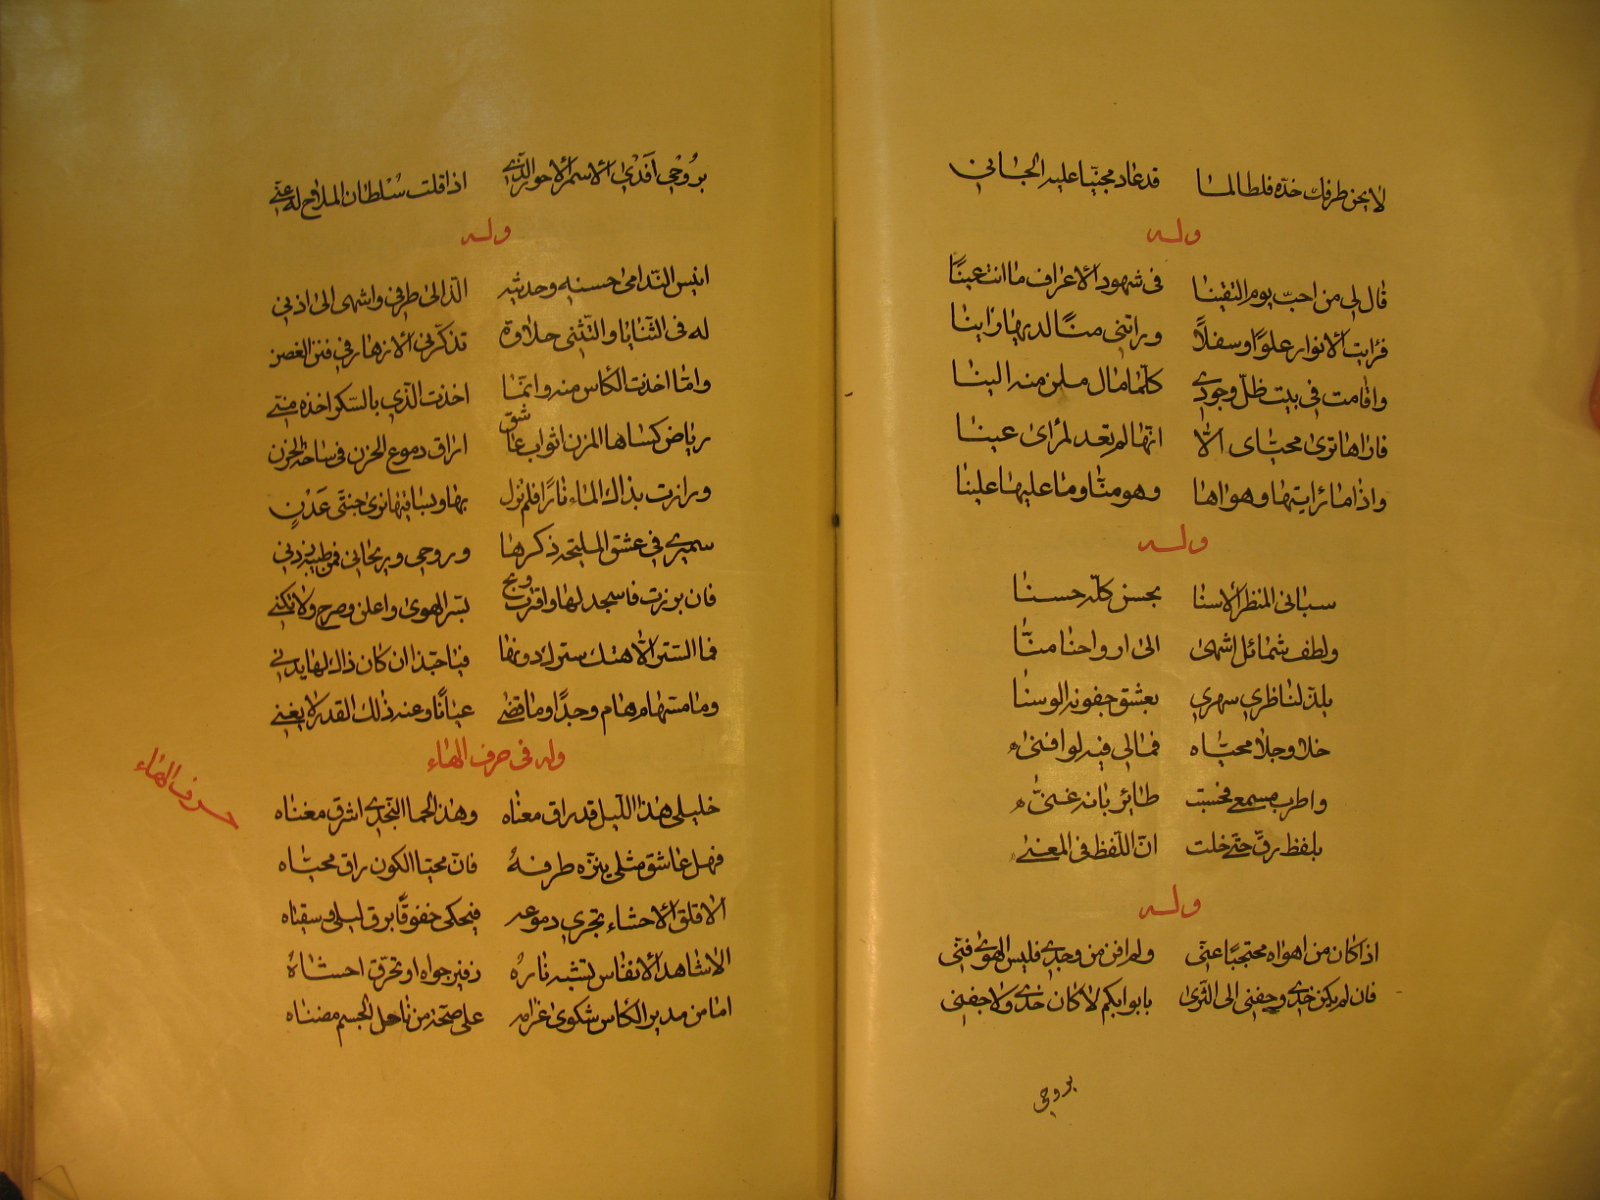 لا يجن طرفك خده فلطالما قد عاد مجنيا عليه الجاني
وله
قال لي من احب يوم التقينا في شهود الاعراف ما انت عينا
فرايت الانوار علوا وسفلا وراتني منا لديها واينا
واقامت في بيت ظل وجودي كلما مال ملن منه الينا
فاراها ترى محياى الا انها لم تعد لمرأى عينا
واذا ما رايتها وهواها وهو منا وما عليها علينا
وله
سباني المنظر الاسنا بحسن كله حسنا
ولطف شمائل اشهى الى ارواحنا منا
يلذ لناظري سهري بعشق جفونه الوسنا
خلا وجلا محياه فمالي فيه لو افنى
واطرب مسمعي فحسبت طائر بانه غنى
بلفظ رق حتى خلت ان اللفظ في المعنى
وله
اذا كان من اهواه محتجبا عني ولم افن من وجدي فليس الهوى فني
فان لم يكن خدي وجفني الى الثرى بابوابكم لا كان خدي ولا جفني
بروحي
بروحي افدي الاسمر الاحور الذي اذا قلت سلطان الملاح له عني
وله
انيس الندامى حسنه وحديثه الذ الى طرفي واشهى الى اذني
له في الثنايا والتثني حلاوة تذكرني الازهار في فنن الغصن
وما اخذت الكاس منه وانما اخذت الذي بالسكر اخذه مني
رياض كساها المزن اثواب عاشق اراق دموع الحزن في ساحة الحزن
وزارت بذاك الماء نارا فلم تزل بها وبسا فيها نرى جنتي عدن
سميري في عشق المليحة ذكرها وروحي وريحاني فمن طيبه زدني
فان برزت فاسجد لها واقترب وبح بسر الهوى واعلن وصرح ولا تكني
فما الستر الا هتك سترك دونها فيا حبذا ان كان ذاك لها يدني
وما مستهام هام وجدا وما قضى عيانا وعنه ذلك القدر لا يغني
وله في حرف الهاء
حرف الهاء
خليلي هذا الليل قد راق معناه وهذا الحما النجدي اشرق مغناه
فهل عاشق مثلي ينزه طرفه فان محيا الكون راق محياه
الا قلق الاحشاء تجري دموعه فيحكي خفوقا برق ليلى وسقياه
الا شاهد الانفاس تشبه ناره زفير جواه او تحرق احشاه
اما من مدير الكاس شكوى غرامه على صحة من ناحل الجسم مضناه